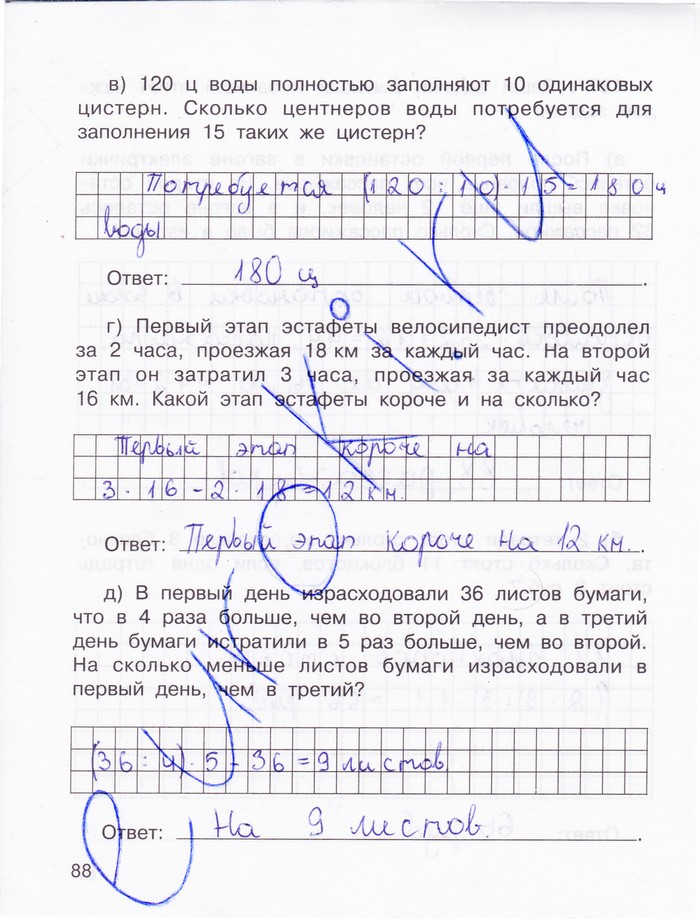 в) 120 ц воды полностью заполняют 10 одинаковых
цистерн. Сколько центнеров воды потребуется для
заполнения 15 таких же цистерн?
Потребуется (120:10)·15=180 ц
воды
Ответ: 180 ц.
г) Первый этап эстафеты велосипедист преодолел
за 2 часа, проезжая 18 км за каждый час. На второй
этап он затратил 3 часа, проезжая за каждый час
16 км. Какой этап эстафеты короче и на сколько?
Первый этап короче на
3·16-2·18=12 км.
Ответ: Первый этап короче на 12 км.
д) В первый день израсходовали 36 листов бумаги,
что в 4 раза больше, чем во второй день, а в третий
день бумаги истратили в 5 раз больше, чем во второй.
На сколько меньше листов бумаги израсходовали в
первый день, чем в третий?
(36:4)·5-36=9 листов
Ответ: На 9 листов.
88